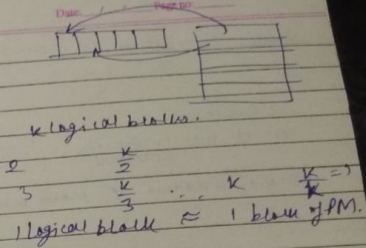 Date: / / Page no:
K logical blocks.
2 K/2
3 K/3 ... K K/K =>
1 logical block ≈ 1 block of PM.